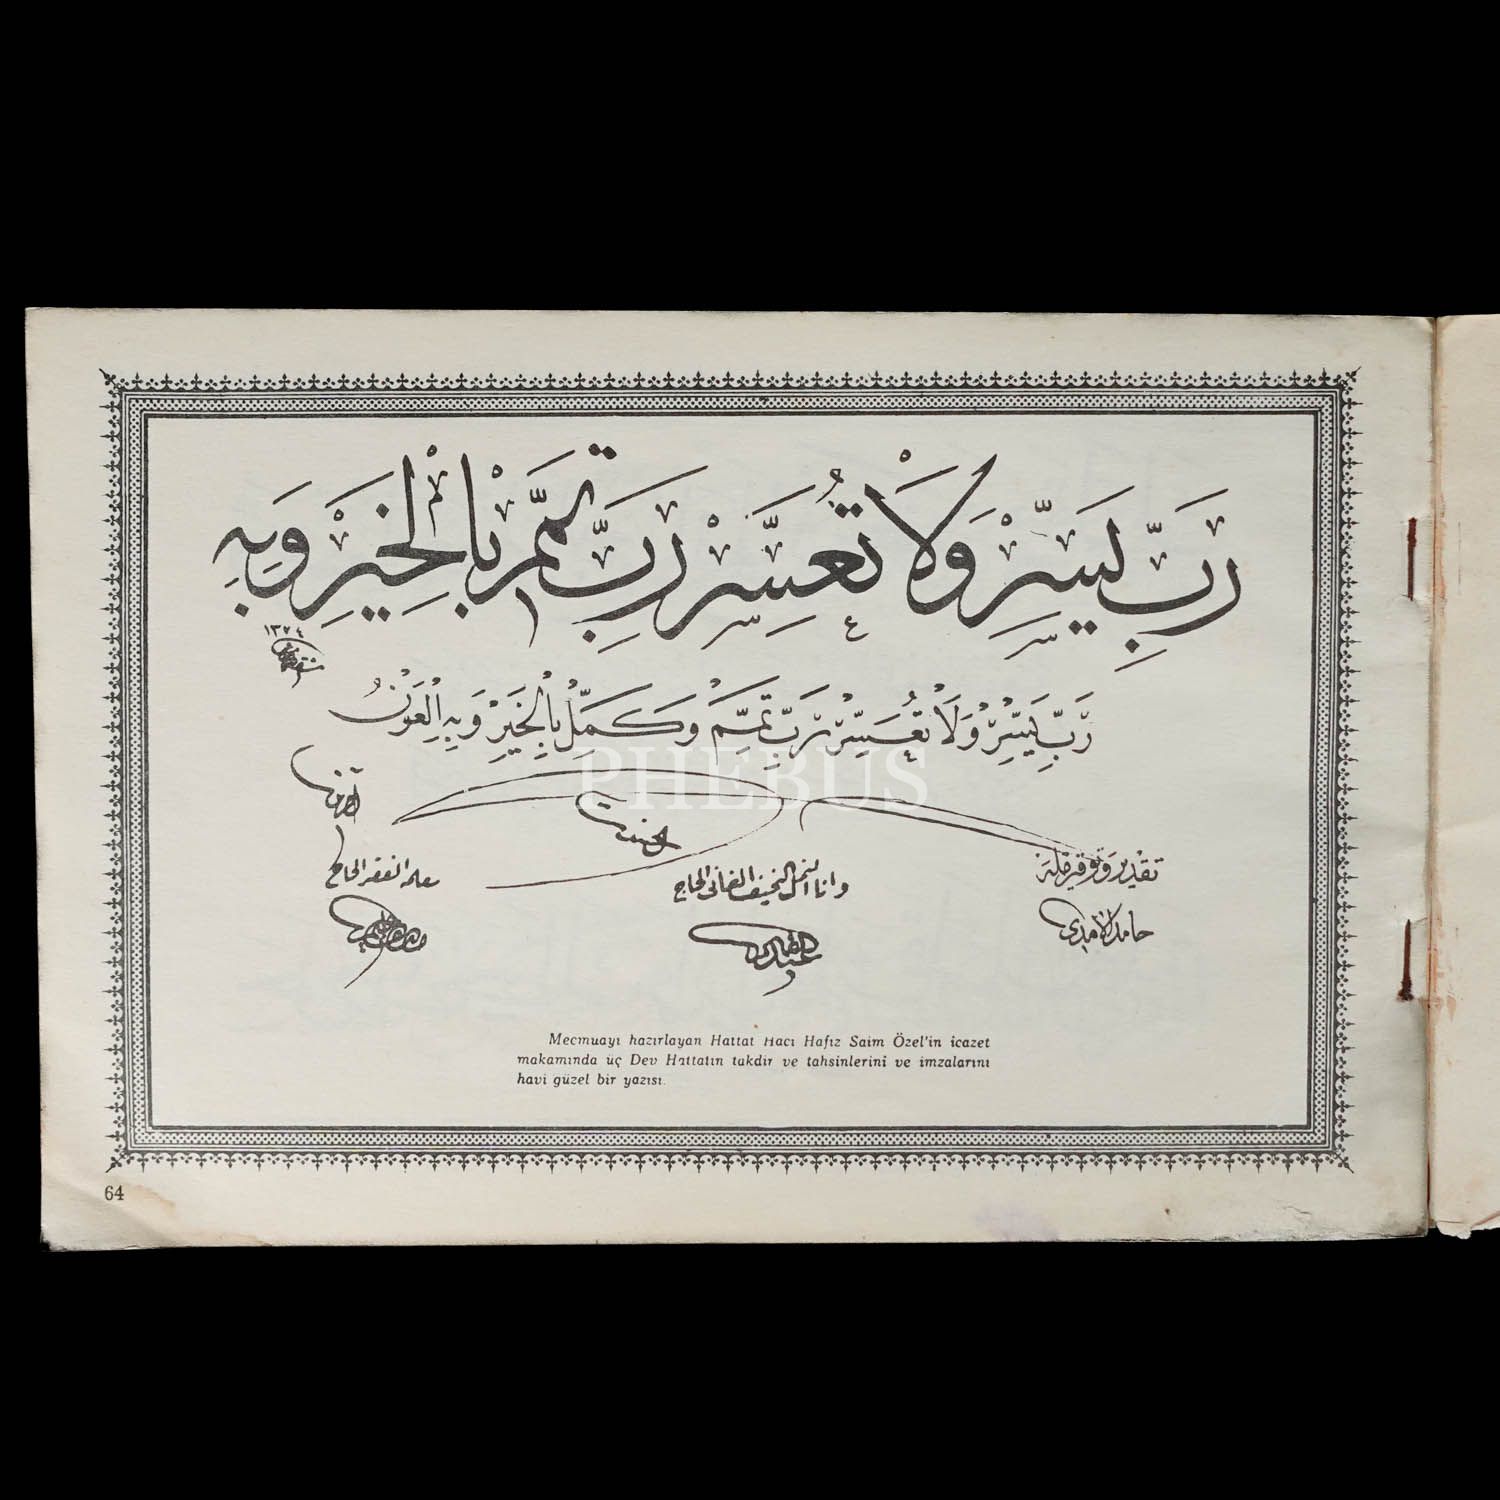 رَبِّ يَسِّرْ وَلَا تُعَسِّرْ رَبِّ تَمِّمْ بِالْخَيْرِ وَبِهِ
١٣٧٤
رَبِّ يَسِّرْ وَلَا تُعَسِّرْ رَبِّ تَمِّمْ وَكَمِّلْ بِالْخَيْرِ وَبِهِ الْعَوْنُ
PHEBUS
آفرين
احسنت
تقدير وتوقيرمله
معلمه الفقير الحاج
وانا النحيف الفانى الحاج
حامد الآمدى
Mecmuayı hazırlayan Hattat Hacı Hafız Saim Özel'in icazet
makamında üç Dev Hattatın takdir ve tahsinlerini ve imzalarını
havi güzel bir yazısı.
64